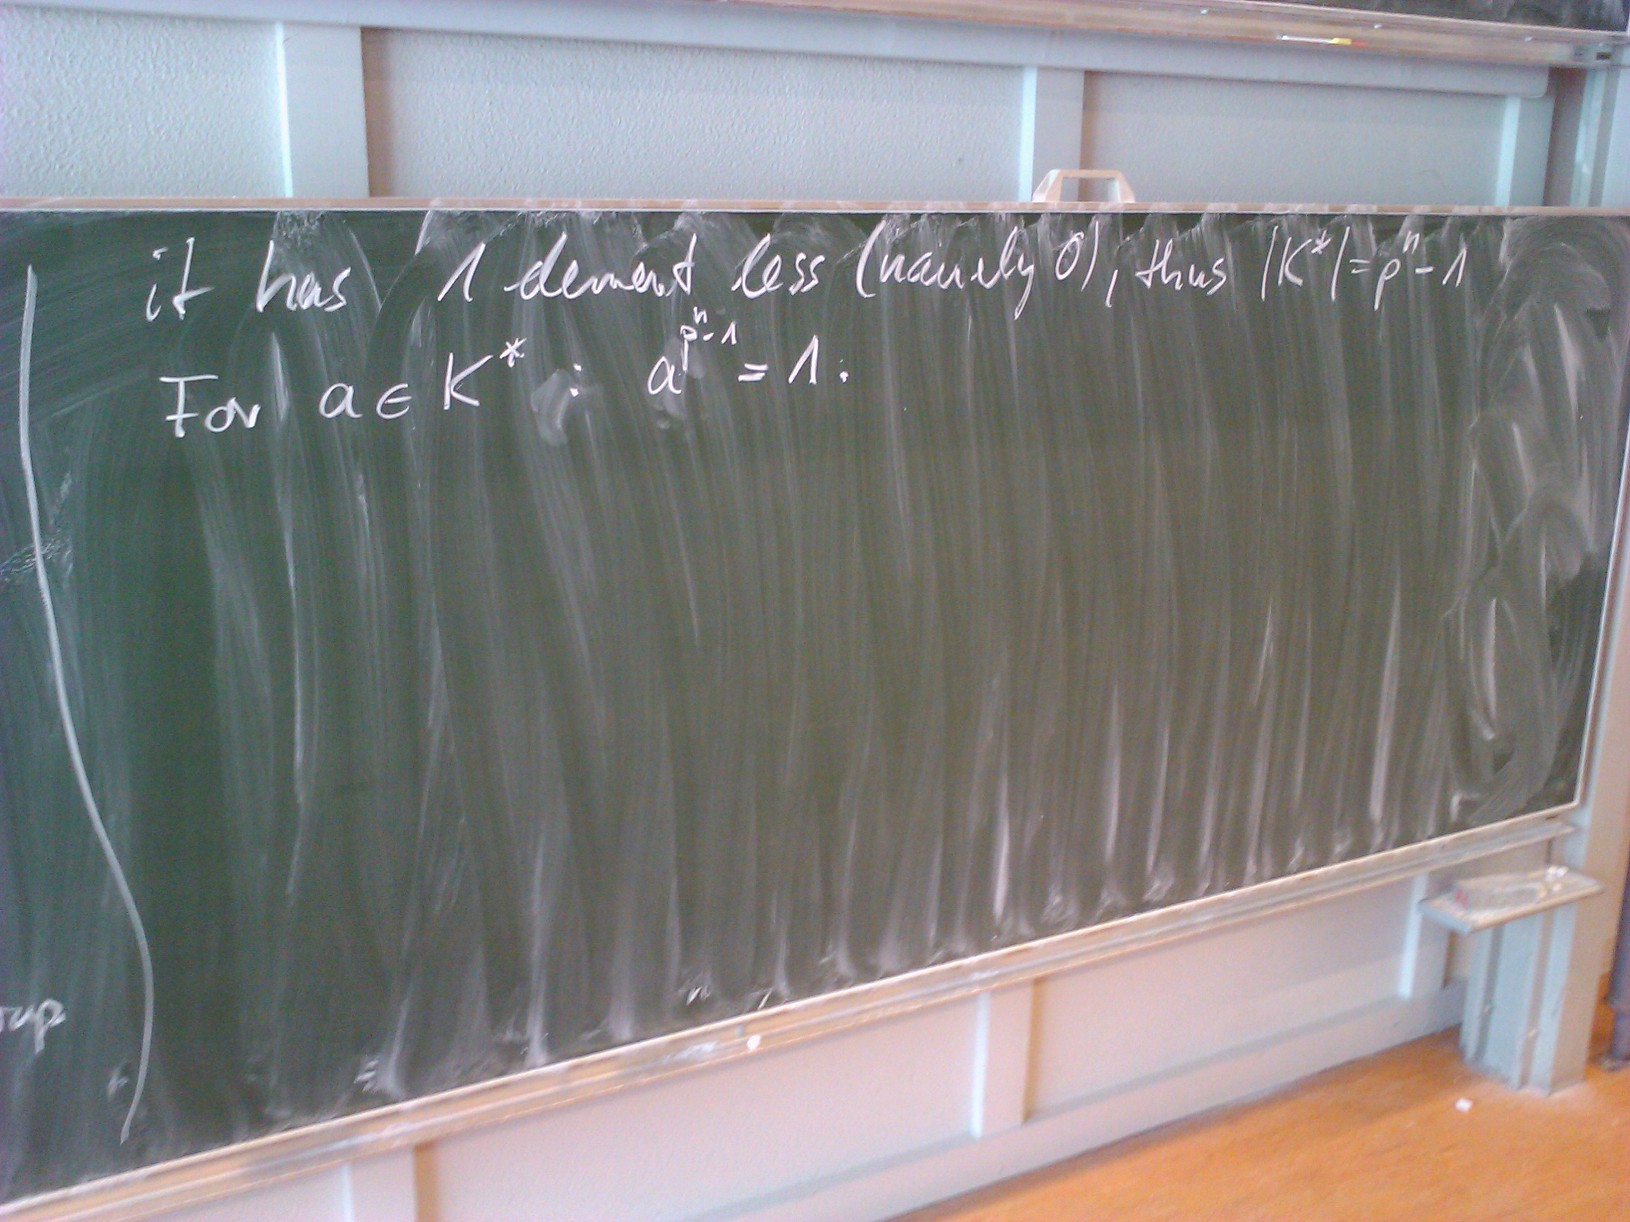 it has 1 element less (namely 0), thus |K*| = pⁿ - 1
For a ∈ K* : a^{pⁿ-1} = 1 .